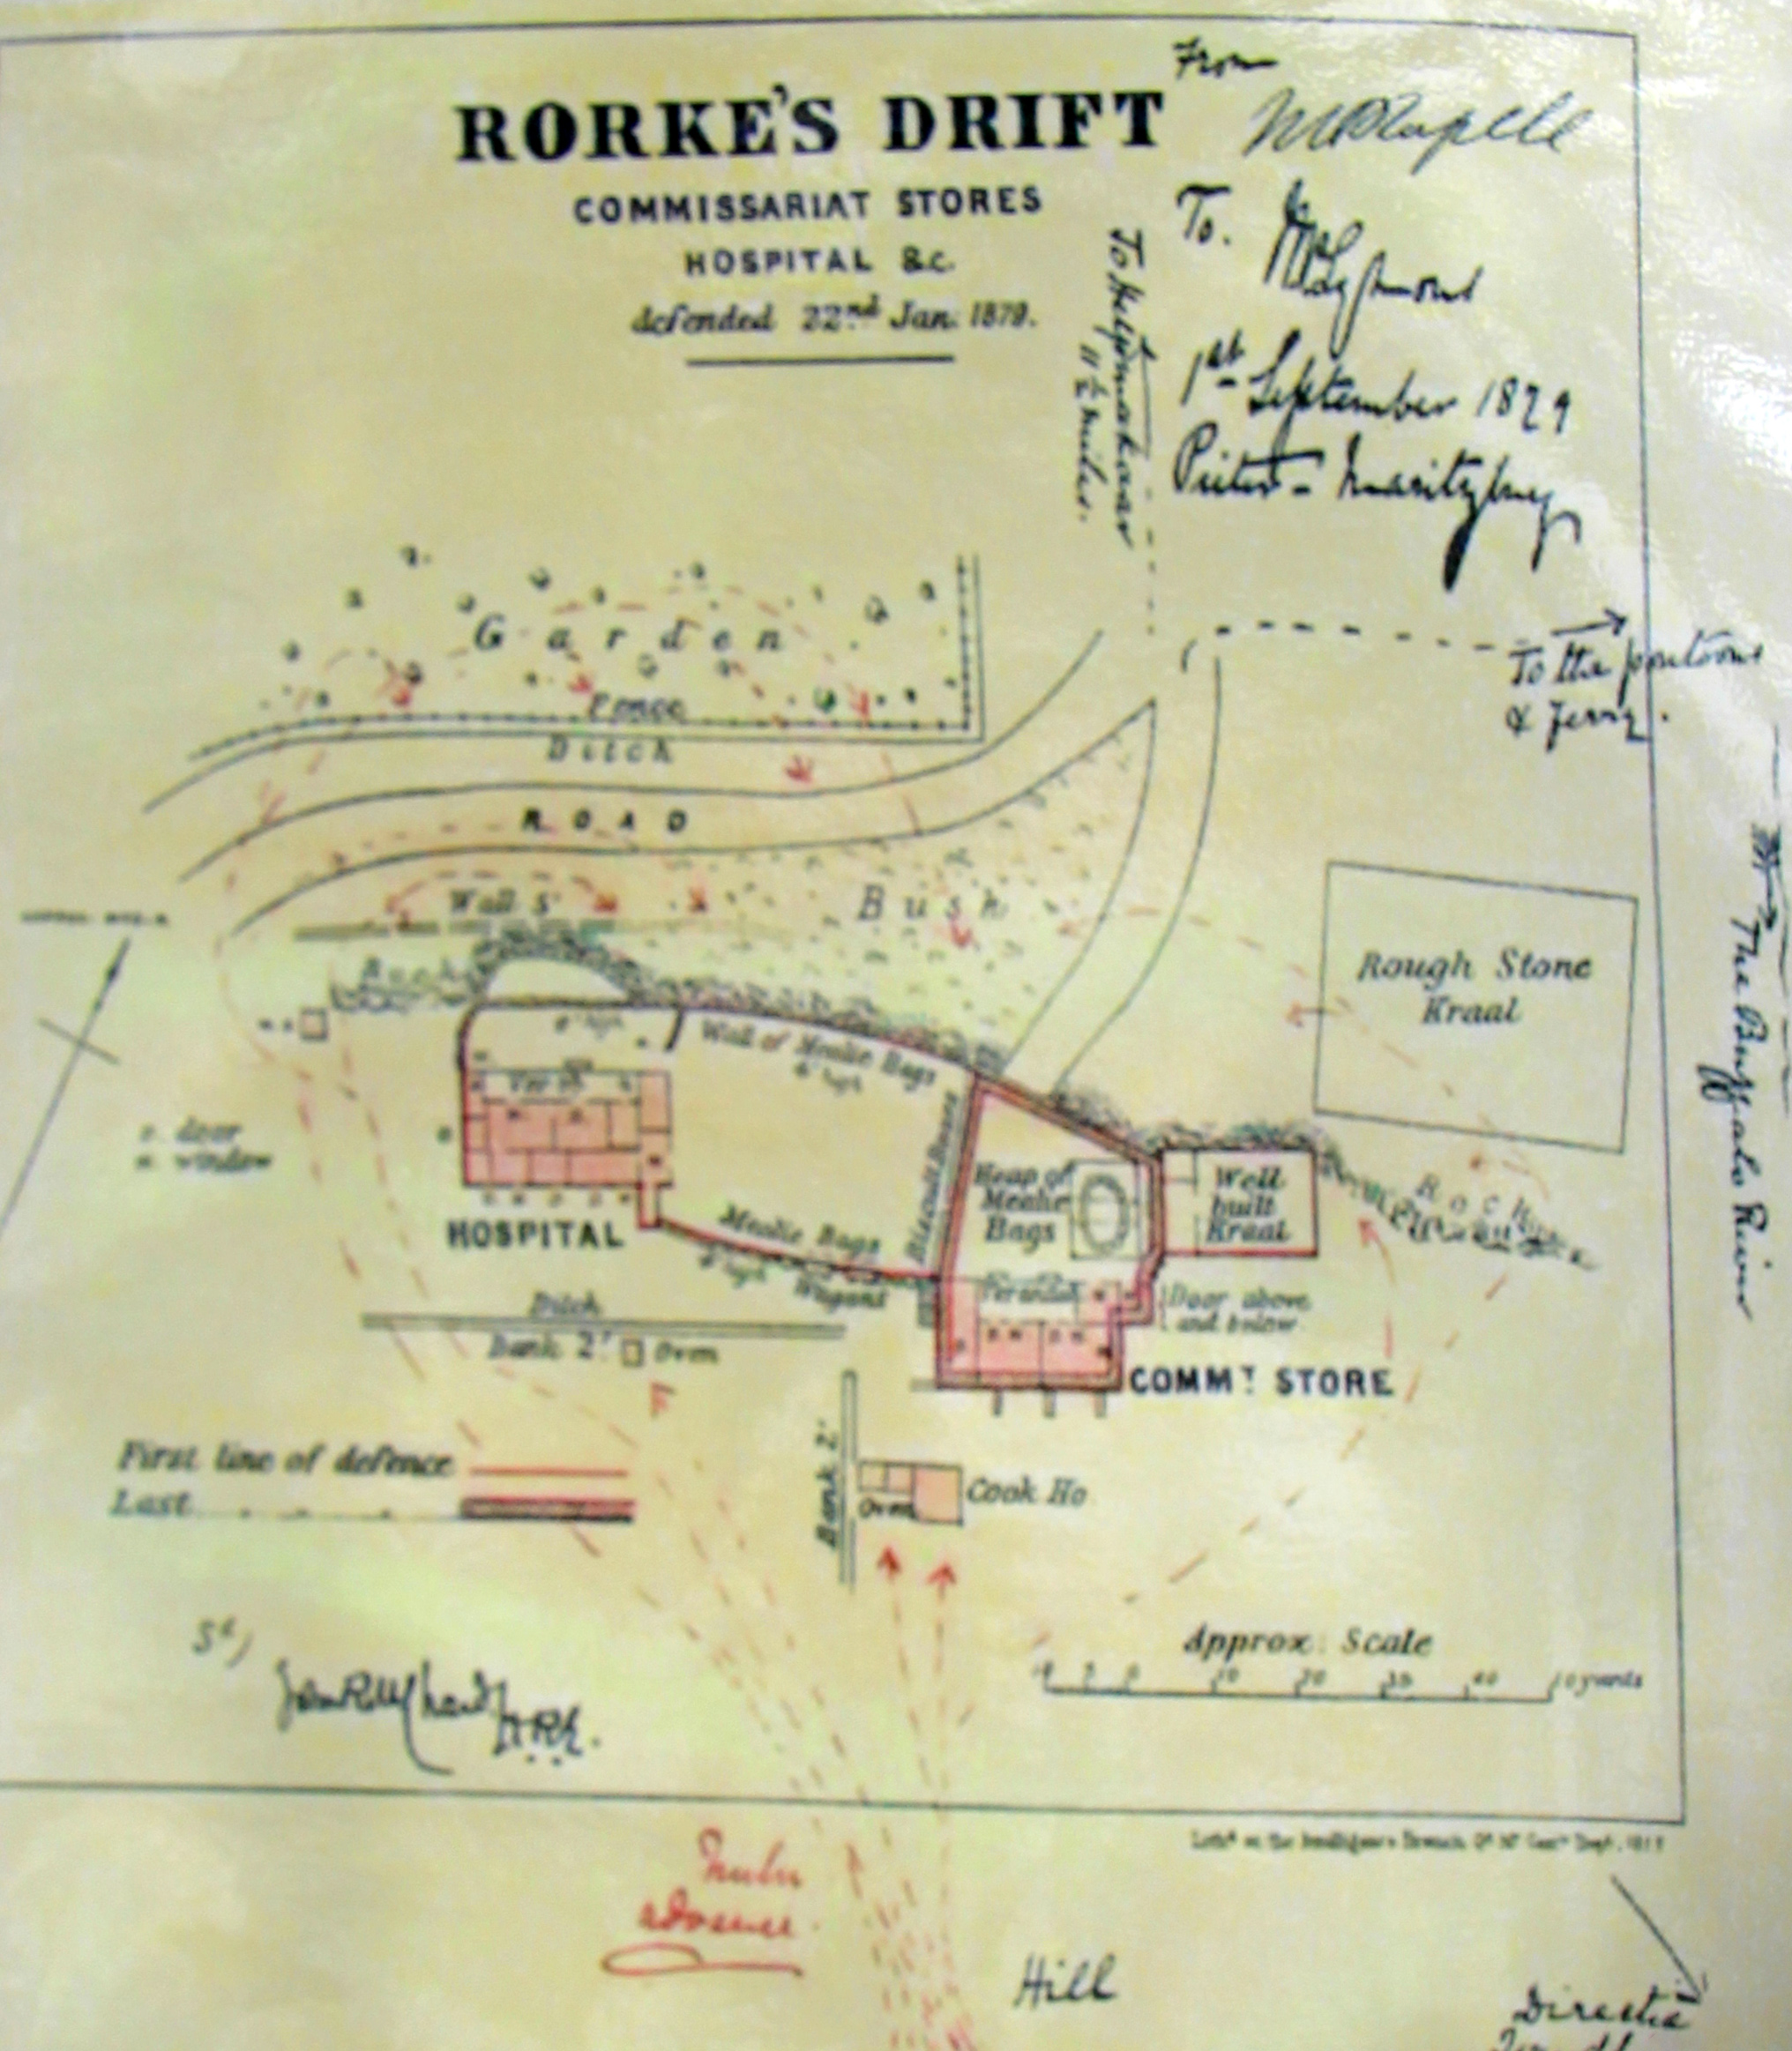 From
RORKE'S DRIFT
COMMISSARIAT STORES
HOSPITAL &c.
defended 22nd Jan: 1879.
To.
1st September 1879
Pieter-Maritzburg
To Helpmakaar
11½ miles.
Garden
Fence
Ditch
ROAD
To the pontoons
& Ferry.
Wall 5'
Bush
Rocks
Rough Stone
Kraal
The Buffalo River
Wall of Mealie Bags
4' high
door
window
Biscuit Boxes
Heap of
Mealie
Bags
Well
built
Kraal
Rocks
HOSPITAL
Mealie Bags
4' high Wagons
Verandah
Door above
and below
Ditch
Bank 2' Oven
COMMT. STORE
First line of defence
Last
Bank 2'
Oven
Cook Ho
Approx: Scale
10 20 30 40 50 yards
Sd)
John R M Chard Lt R.E.
Zulu
advance.
Hill